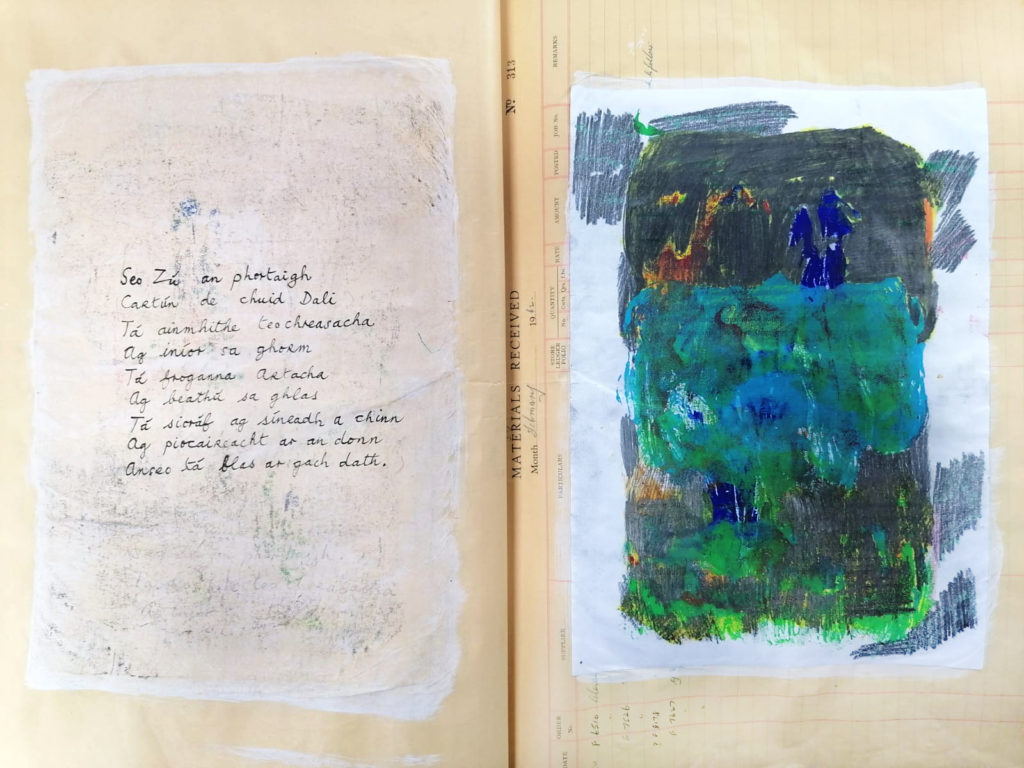 Seo Zú an phortaigh
Cartún de chuid Dali
Tá ainmhithe teochreasacha
Ag iníor sa ghorm
Tá froganna Artacha
Ag beathú sa ghlas
Tá sioráf ag síneadh a chinn
Ag piocaireacht ar an donn
Anseo tá blas ar gach dath.
MATERIALS RECEIVED
No. 313
Month February 196
DATE
ORDER No.
SUPPLIER
PARTICULARS
STORE LEDGER FOLIO
QUANTITY
No.
RATE
AMOUNT
POSTED
JOB No.
REMARKS